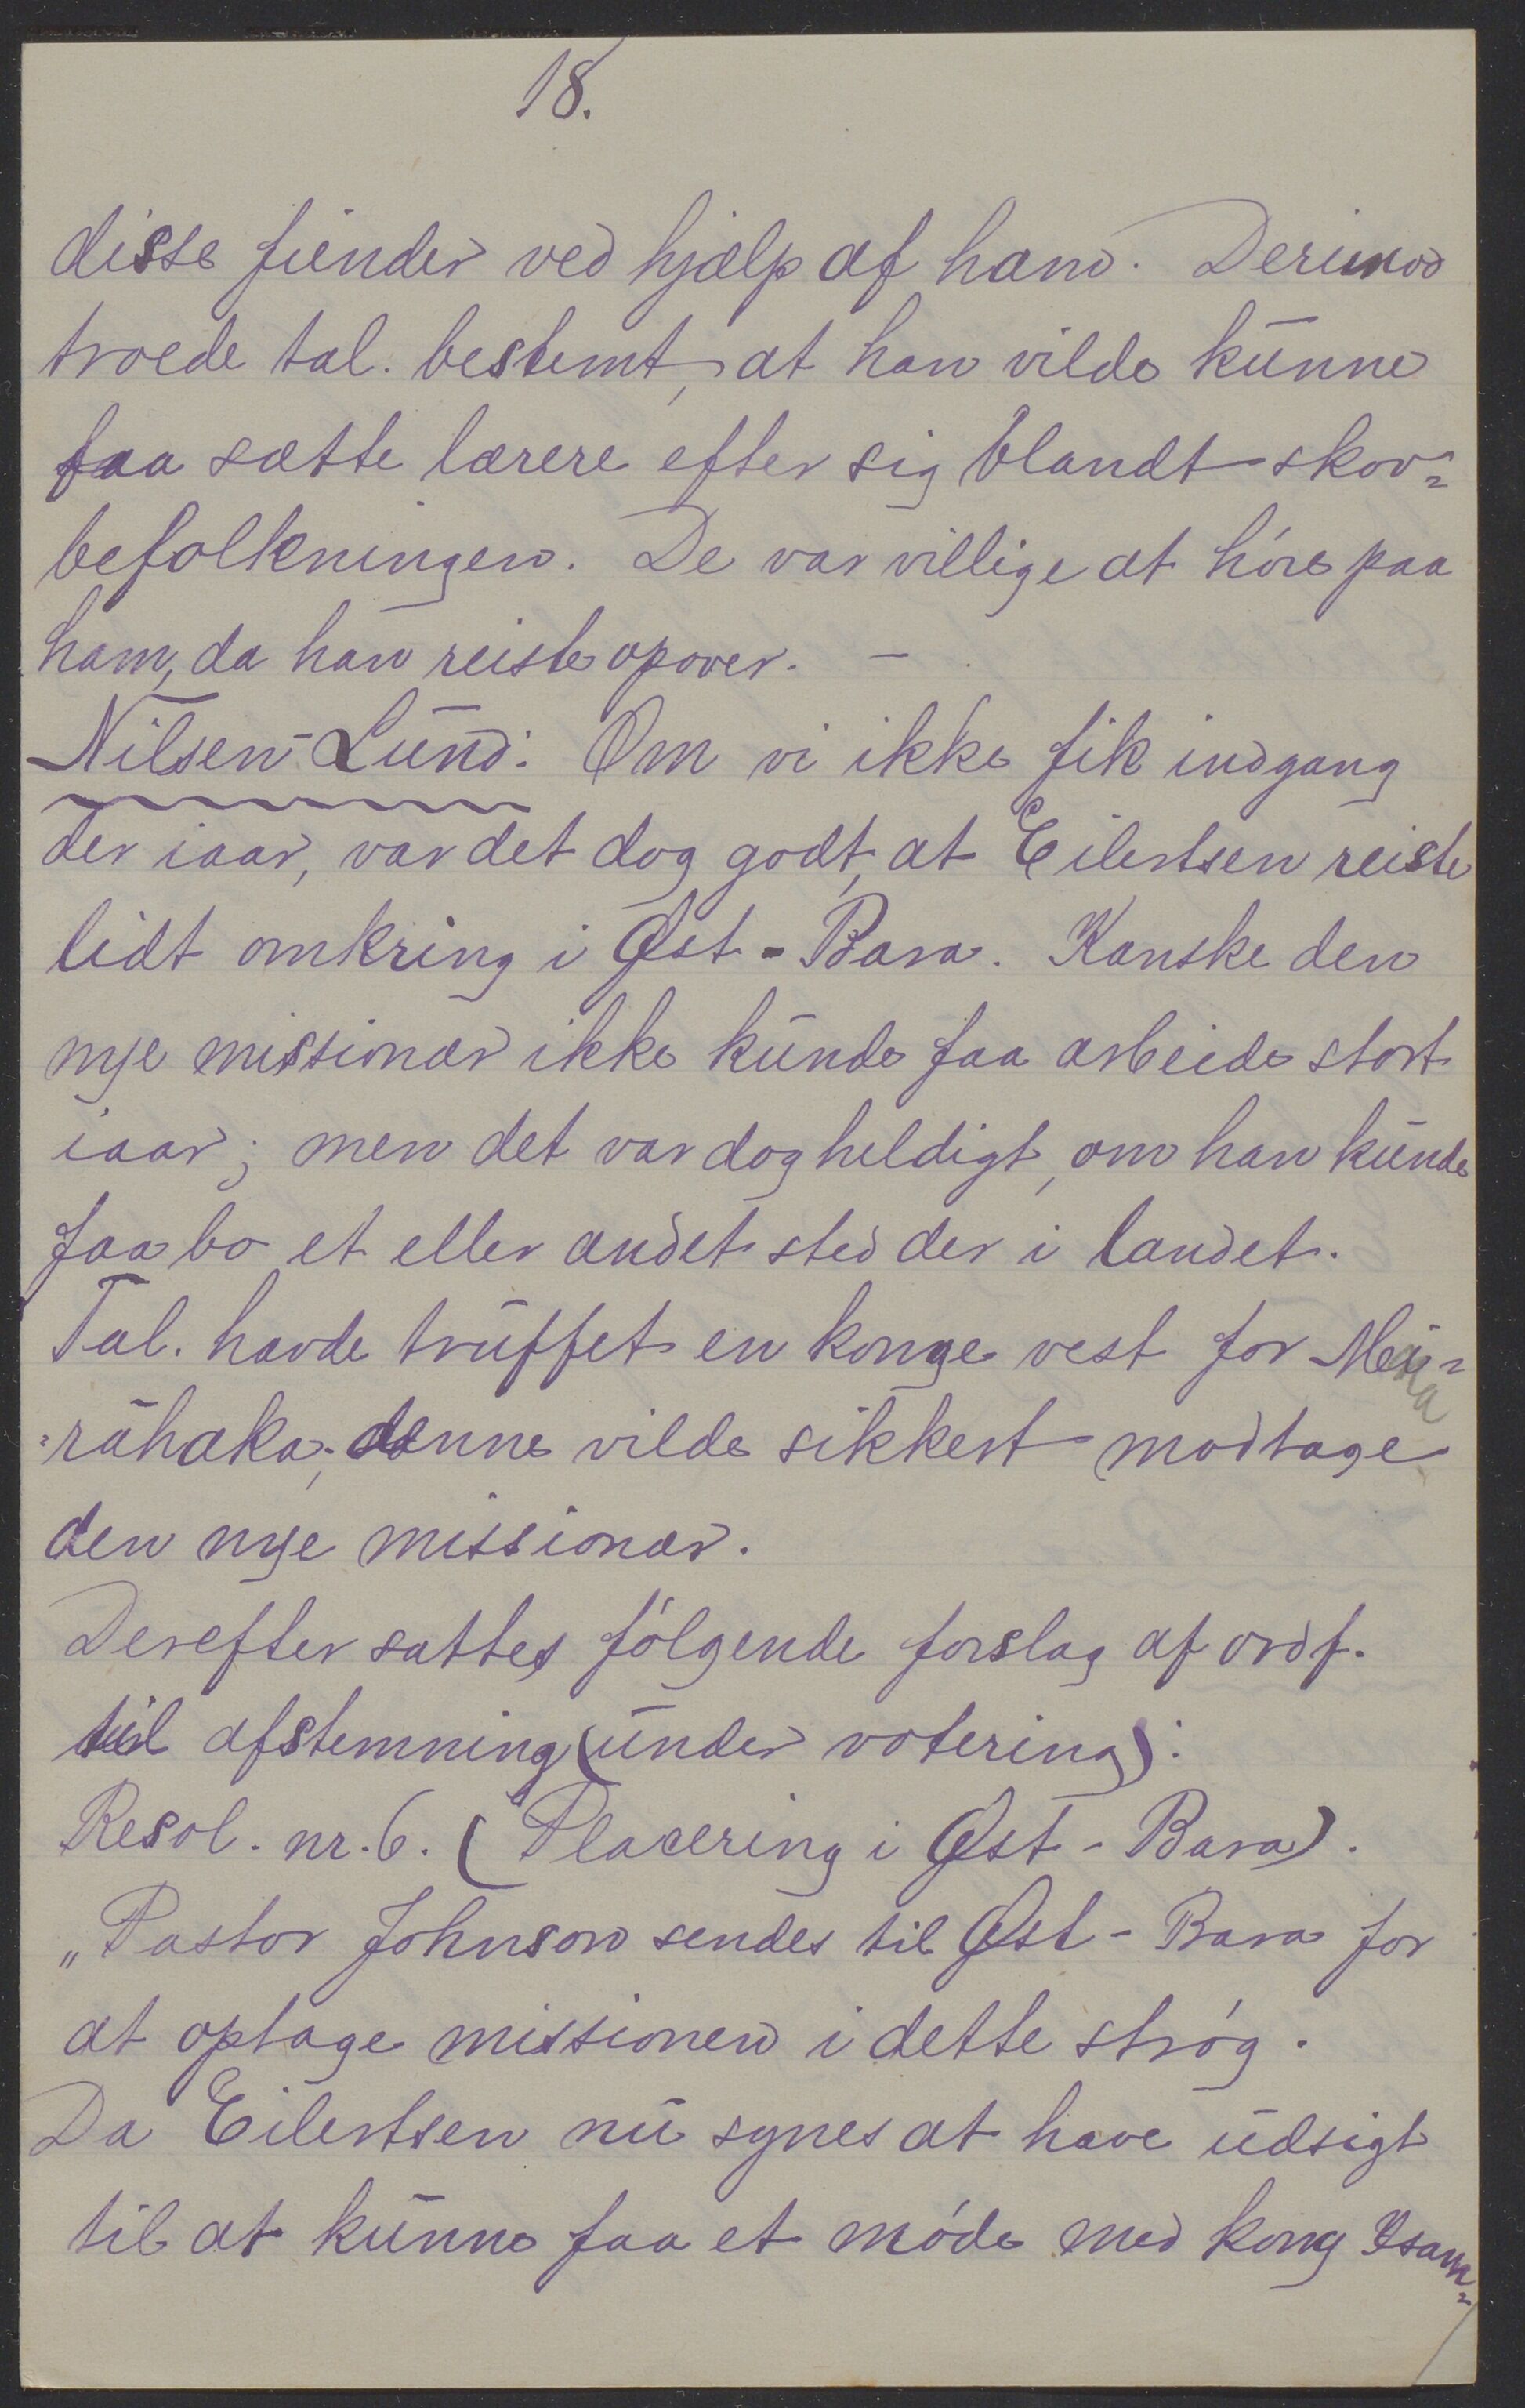 18.
disse fiender ved hjælp af ham. Derimod
troede tal. bestemt, at han vilde kunne
faa sætte lærere efter sig blandt skov=
befolkningen. De var villige at høre paa
ham, da han reiste opover. –
Nilsen-Lund: Om vi ikke fik indgang
der iaar, var det dog godt, at Eilertsen reiste
lidt omkring i Øst-Bara. Kanske den
nye missionær ikke kunde faa arbeide stort
iaar; men det var dog heldigt, om han kunde
faa bo et eller andet sted der i landet.
Tal. havde truffet en konge vest for
=rahaka; denne vilde sikkert modtage
den nye missionær.
Derefter sattes følgende forslag af ordf.
til afstemning (under votering):
Resol. nr. 6. (Placering i Øst-Bara).
„Pastor Johnson sendes til Øst-Bara for
at optage missionen i dette strøg.
Da Eilertsen nu synes at have udsigt
til at kunne faa et møde med kong Isam=